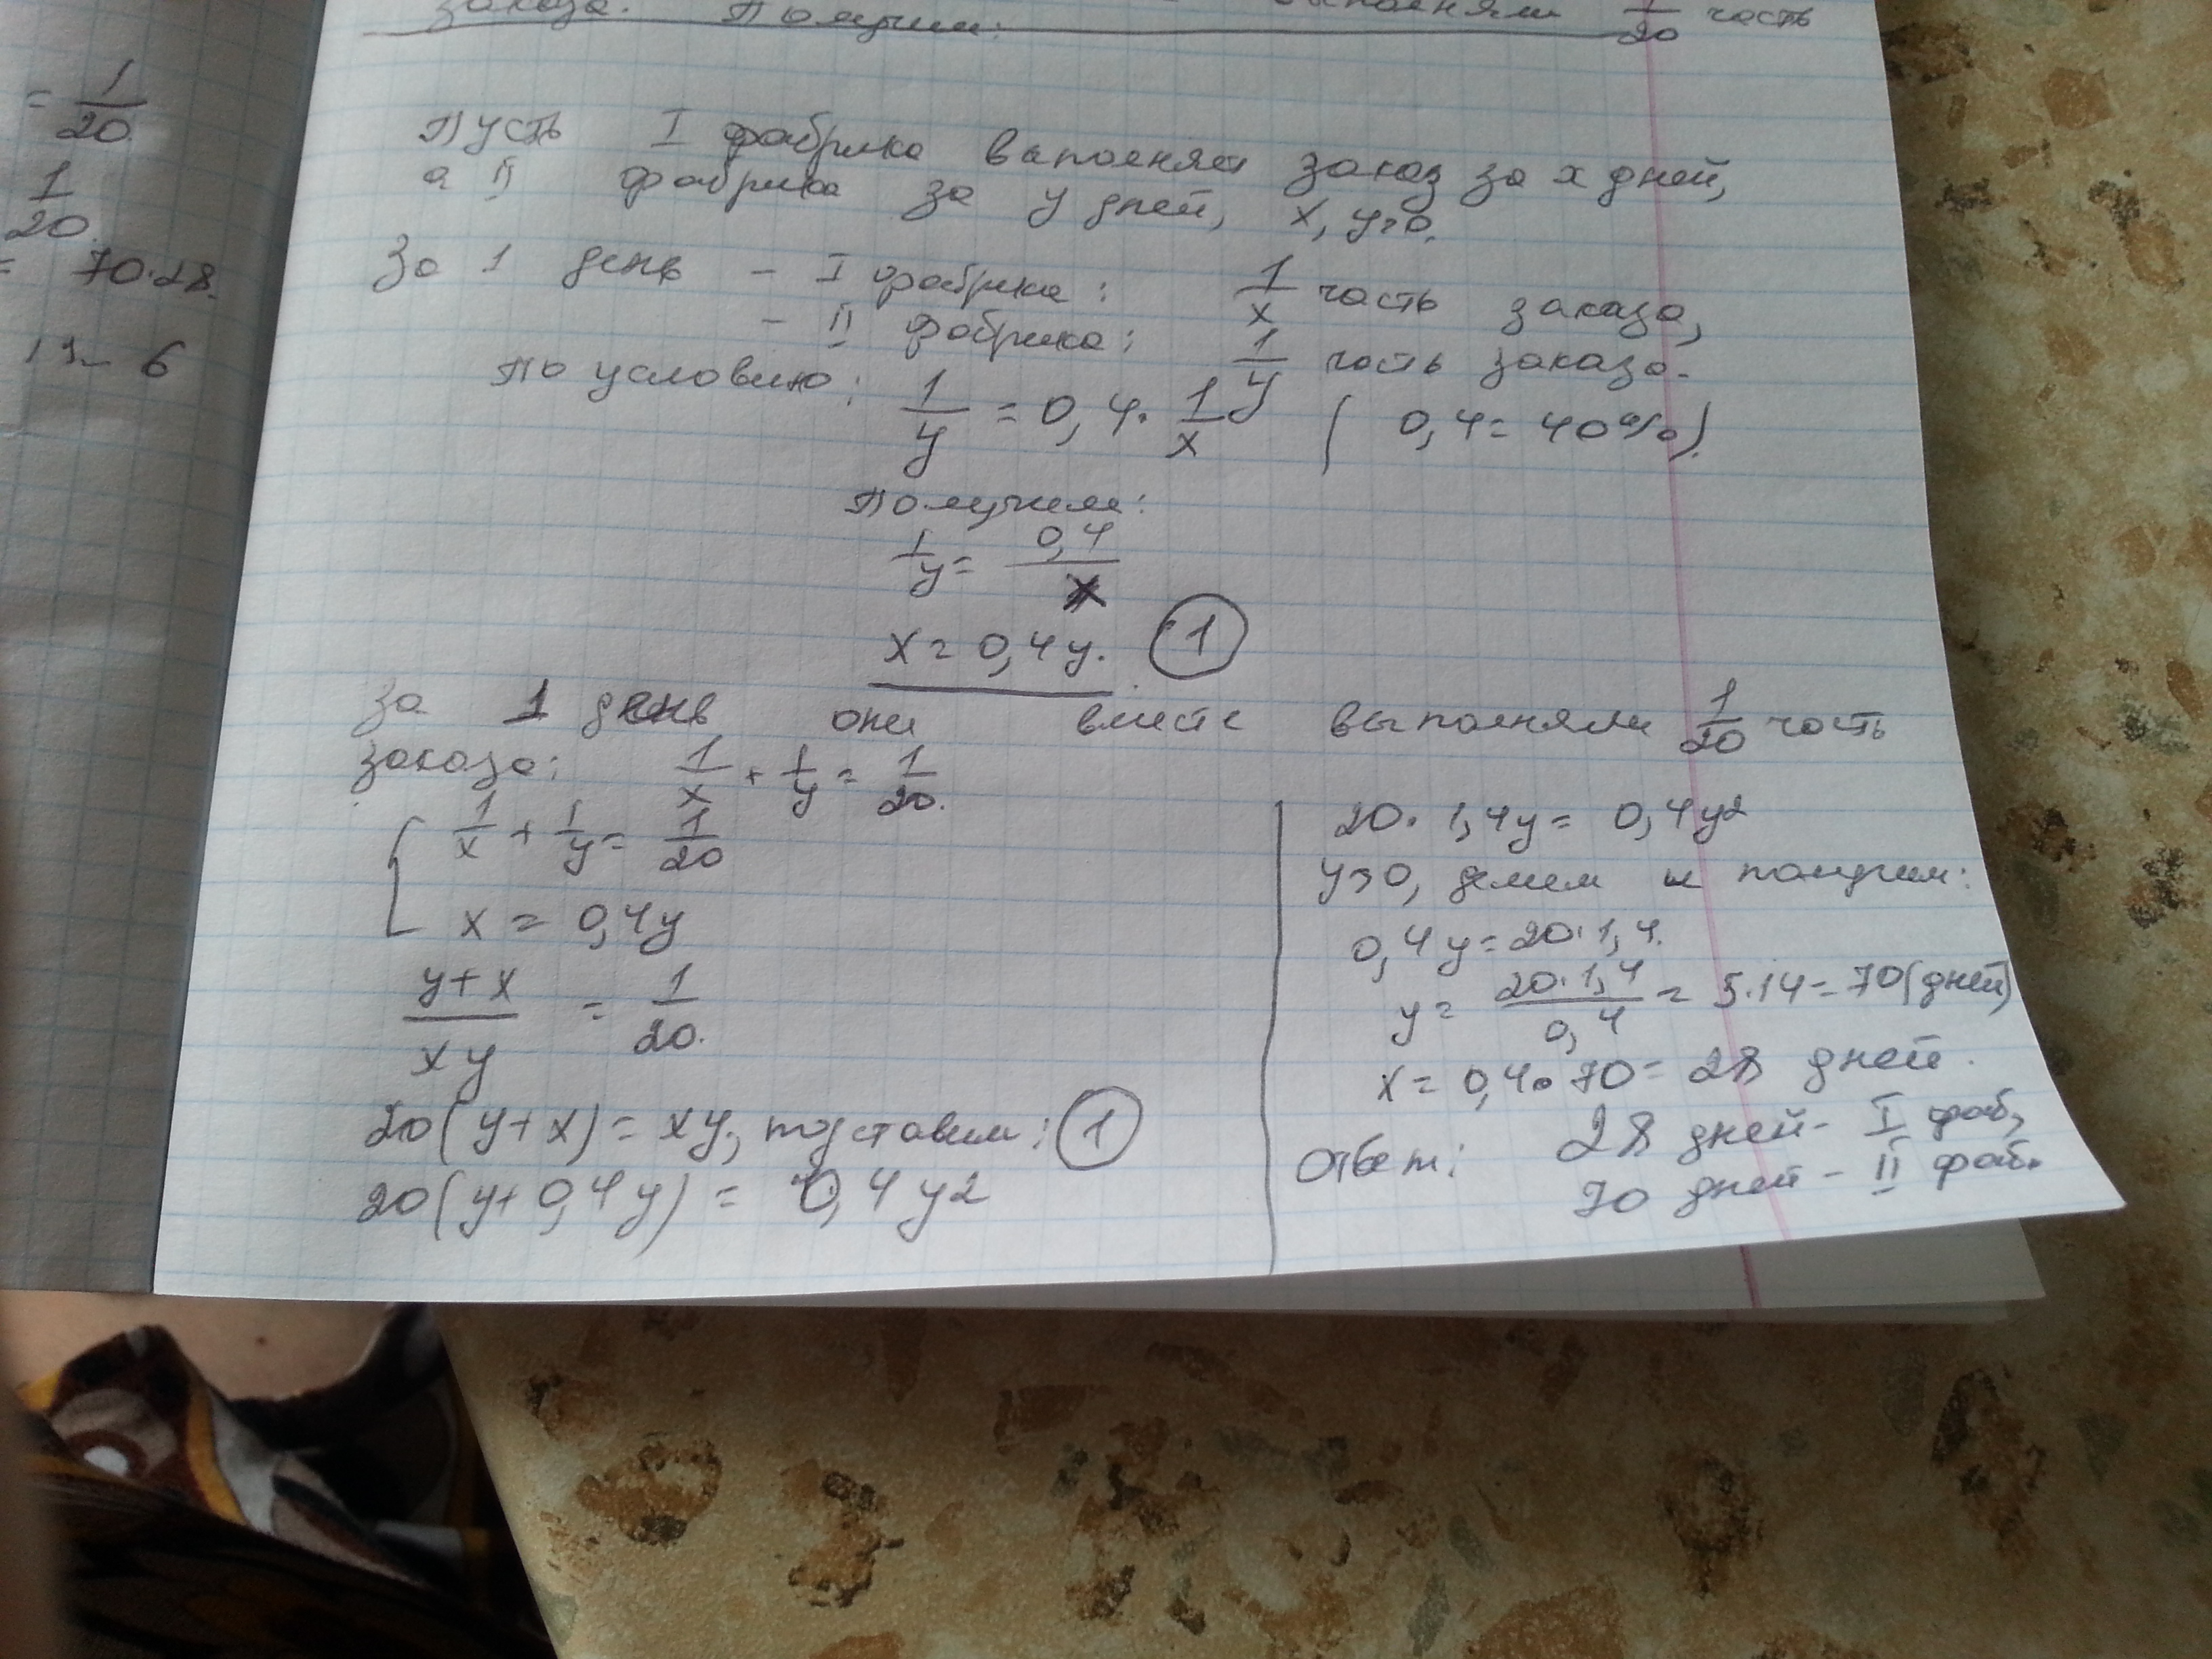 = 1/20.
1/20.
= 70·28.
заказа. Получим: выполняли 1/20 часть
Пусть I фабрика выполняет заказ за x дней,
а II фабрика за y дней, x, y>0.
За 1 день – I фабрика: 1/x часть заказа,
– II фабрика: 1/y часть заказа.
По условию: 1/y = 0,4·1/x (0,4 = 40%).
Получим:
1/y = 0,4/x
x = 0,4y. (1)
за 1 день они вместе выполняли 1/20 часть
заказа: 1/x + 1/y = 1/20.
{ 1/x + 1/y = 1/20
x = 0,4y
(y+x)/(xy) = 1/20.
20(y+x) = xy, подставим: (1)
20(y+0,4y) = 0,4y2
20·1,4y = 0,4y2
y>0, делим и получим:
0,4y = 20·1,4.
y = (20·1,4)/0,4 = 5·14 = 70 (дней)
x = 0,4·70 = 28 дней.
Ответ: 28 дней - I фаб,
70 дней - II фаб.